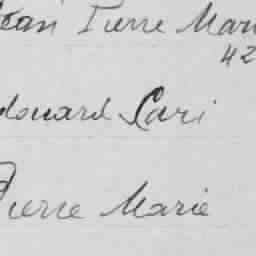 Jean Pierre Mari
42
douard Cari
Pierre Marie